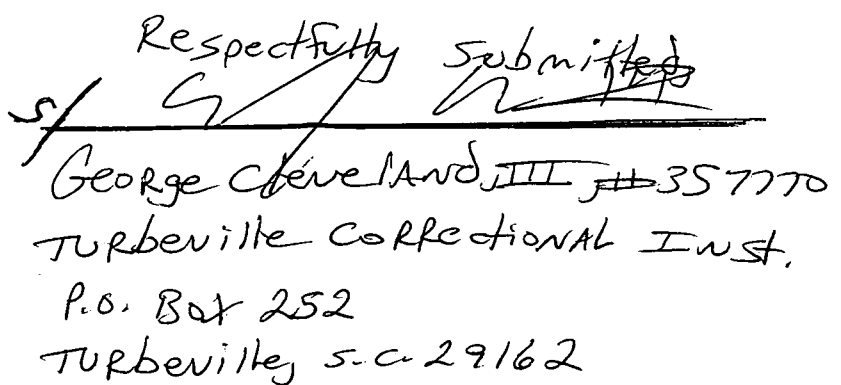 Respectfully Submitted,
S/
George Cleveland, III, #357770
Turbeville Correctional Inst.
P.O. Box 252
Turbeville, S.C. 29162